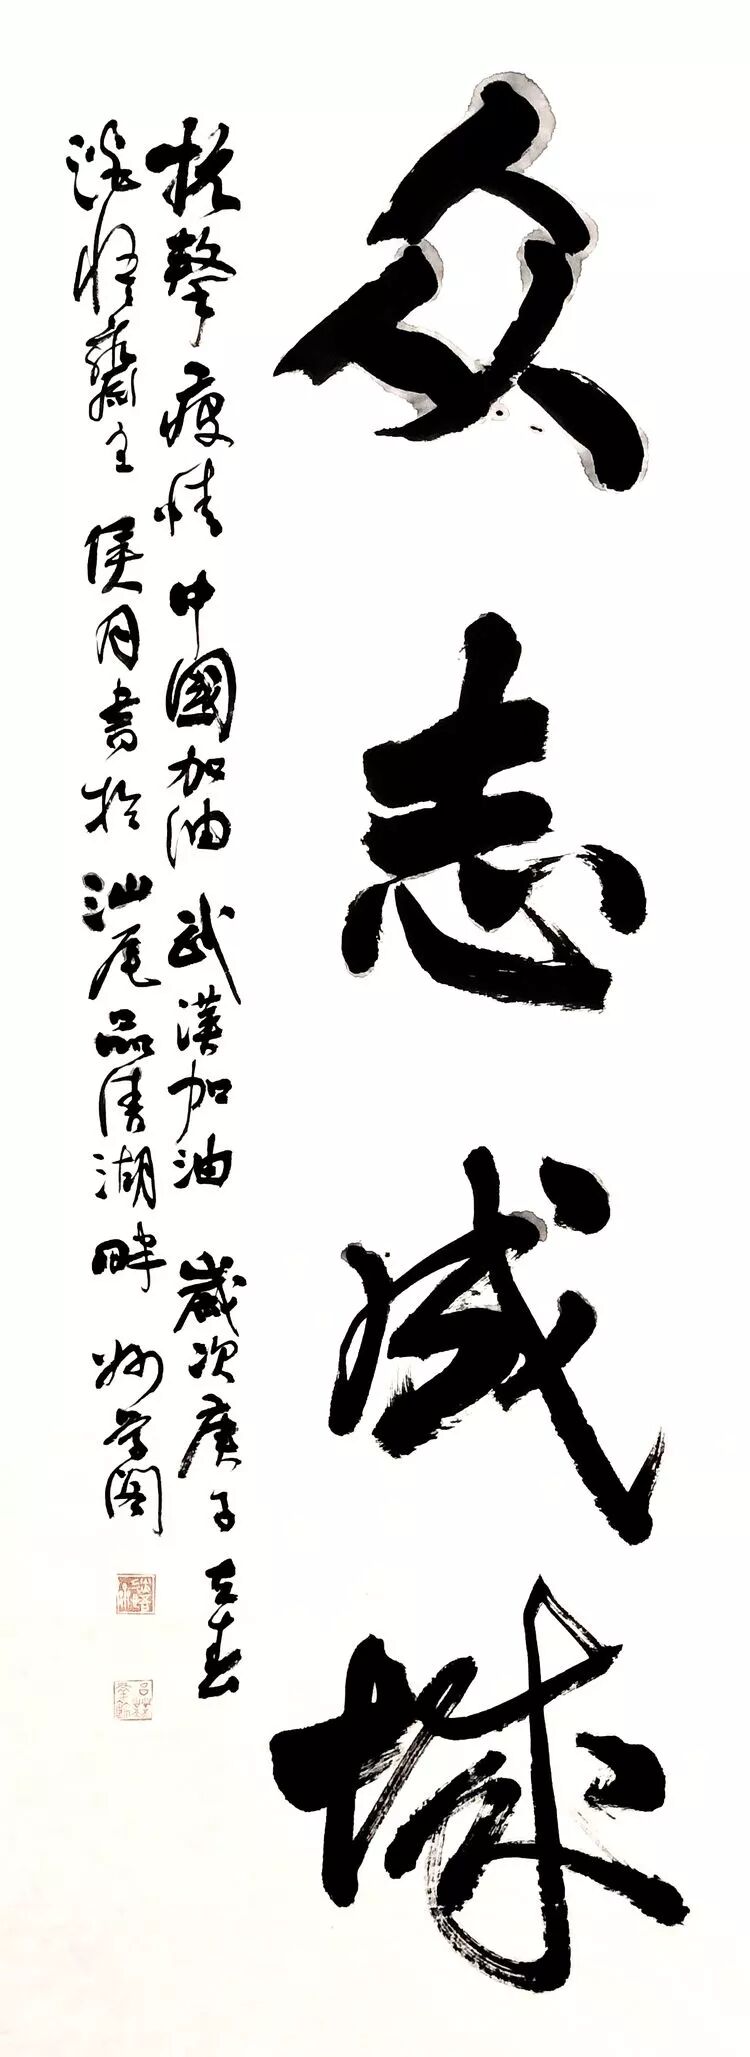 众志成城
抗擊疫情 中國加油 武漢加油 歲次庚子立春
悟齋主 侯月書於汕尾品清湖畔 閣